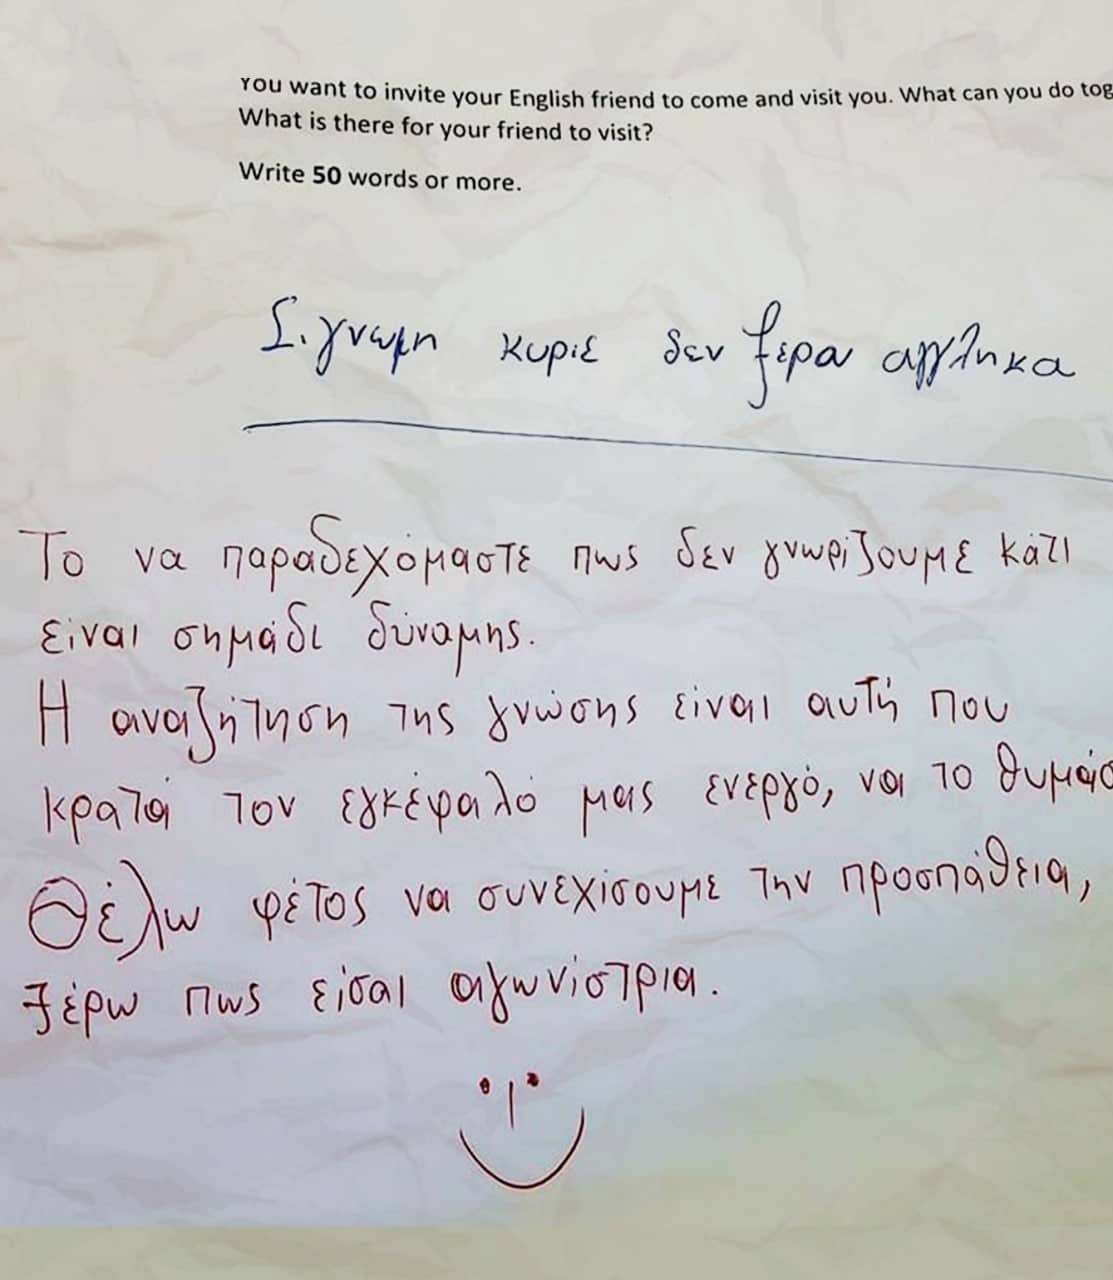 You want to invite your English friend to come and visit you. What can you do tog
What is there for your friend to visit?
Write 50 words or more.
Σ.γνωμη κυριε δεν ξερω αγγληκα
Το να παραδεχόμαστε πως δεν γνωρίζουμε κάτι
είναι σημάδι δύναμης.
Η αναζήτηση της γνώσης είναι αυτή που
κρατά τον εγκέφαλό μας ενεργό, να το θυμάσ
Θέλω φέτος να συνεχίσουμε την προσπάθεια,
ξέρω πως είσαι αγωνίστρια.